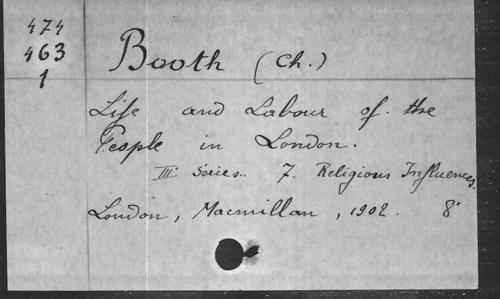 474
463
1
Booth (Ch.)
Life and Labour of the
People in London.
III. Series. 7. Religious Influences.
London, Macmillan, 1902. 8°